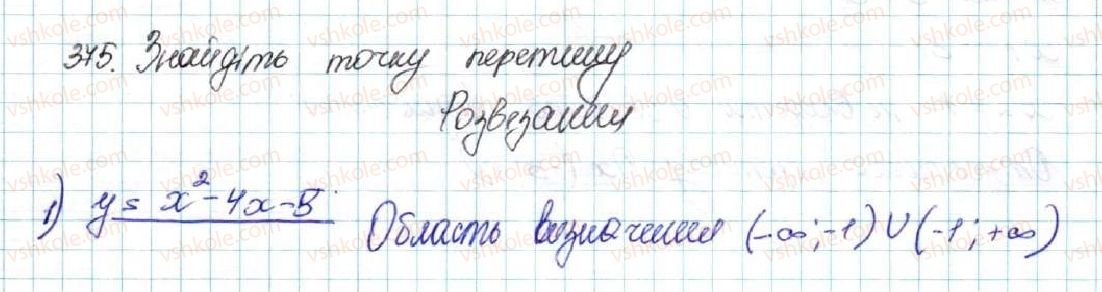 375. Знайдіть точку перетину
Розвезання
1) y = x² - 4x - 5 Область визначення (-∞; -1) ∪ (-1; +∞)